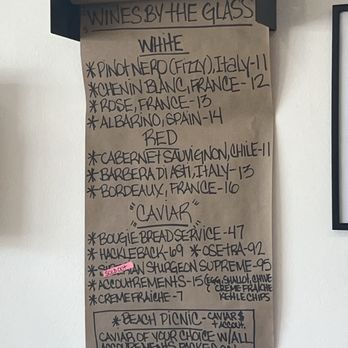 WINES BY THE GLASS
WHITE
*PINOT NERO (FIZZY), Italy-11
*CHENIN BLANC, FRANCE-12
*ROSE, FRANCE-13
*ALBARINO, SPAIN-14
RED
*CABERNET SAUVIGNON, CHILE-11
*BARBERA DI ASTI, ITALY-13
*BORDEAUX, FRANCE-16
"CAVIAR"
*BOUGIE BREAD SERVICE-47
*HACKLEBACK-69 *OSETRA-92
STURGEON SUPREME-95
*ACCOUTREMENTS-15 (EGG, SHALLOT, CHIVE
*CREME FRAICHE-7 CREME FRAICHE
KETTLE CHIPS
*BEACH PICNIC- CAVIAR $
+ ACCOUT.
CAVIAR OF YOUR CHOICE W/ALL